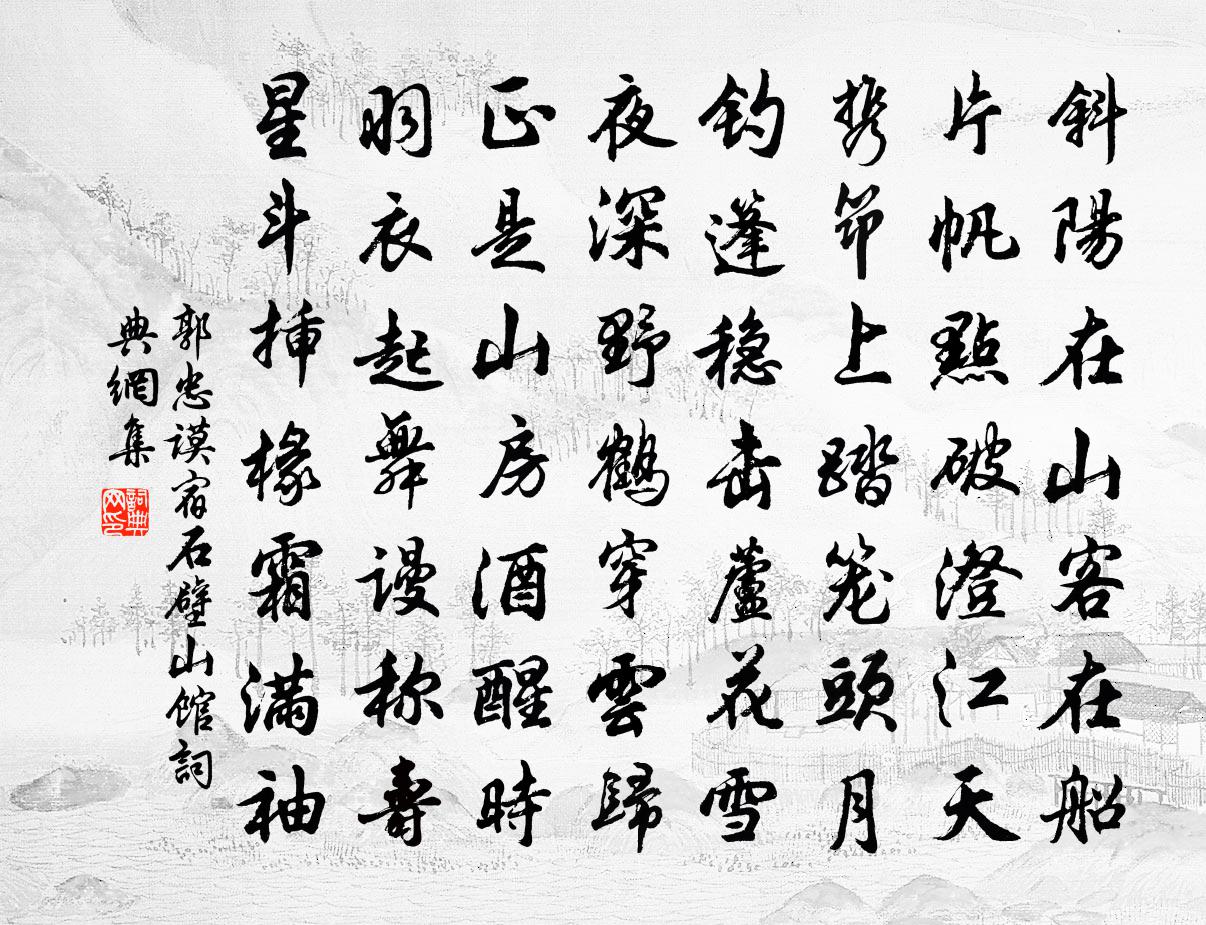 斜陽在山客在船
片帆點破澄江天
携笻上踏笼頭月
钓篷稳击蘆花雪
夜深野鶴穿雲歸
正是山房酒醒時
羽衣起舞谩称壽
星斗挿椽霜满袖
郭忠謨宿石壁山馆詞
典網集
詞典
网印